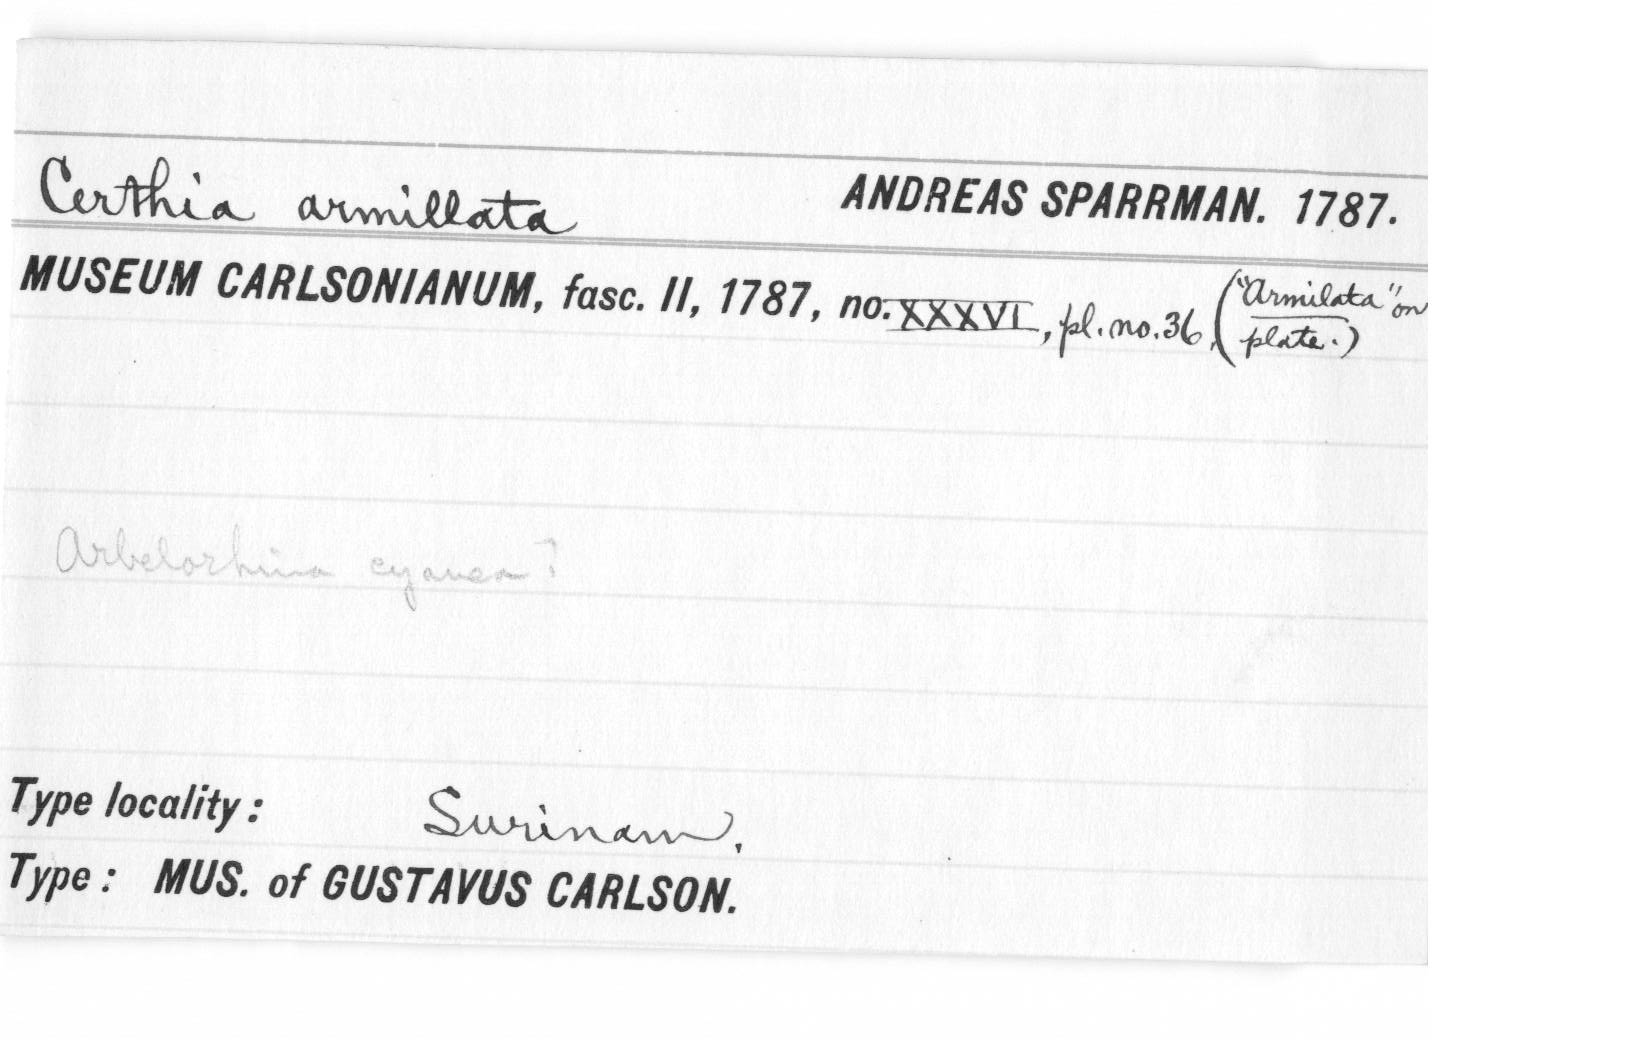 Certhia armillata ANDREAS SPARRMAN. 1787.
MUSEUM CARLSONIANUM, fasc. II, 1787, no. XXXVI, pl. no. 36, ("Armilata" on
plate.)
Arbelorhina cyanea?
Type locality: Surinam.
Type: MUS. of GUSTAVUS CARLSON.